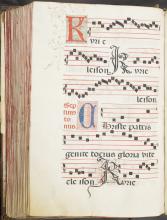 Kyrie
leison. Kyrie
leison.
Septimi toni. Christe patris
genite totius gloria vite
eleison. Kyrie